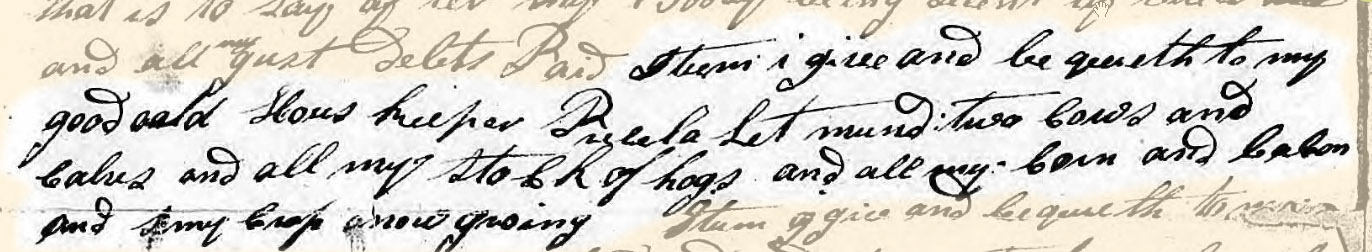 that is to say after my Body being decent
and all my Just Debts Paid Itum i give and be queeth to my
good oald Hous keeper Let mund two Cows and
Calves and all my Stock of hogs and all my Corn and Bacon
and my Crop now growing Itum I give and bequeeth to